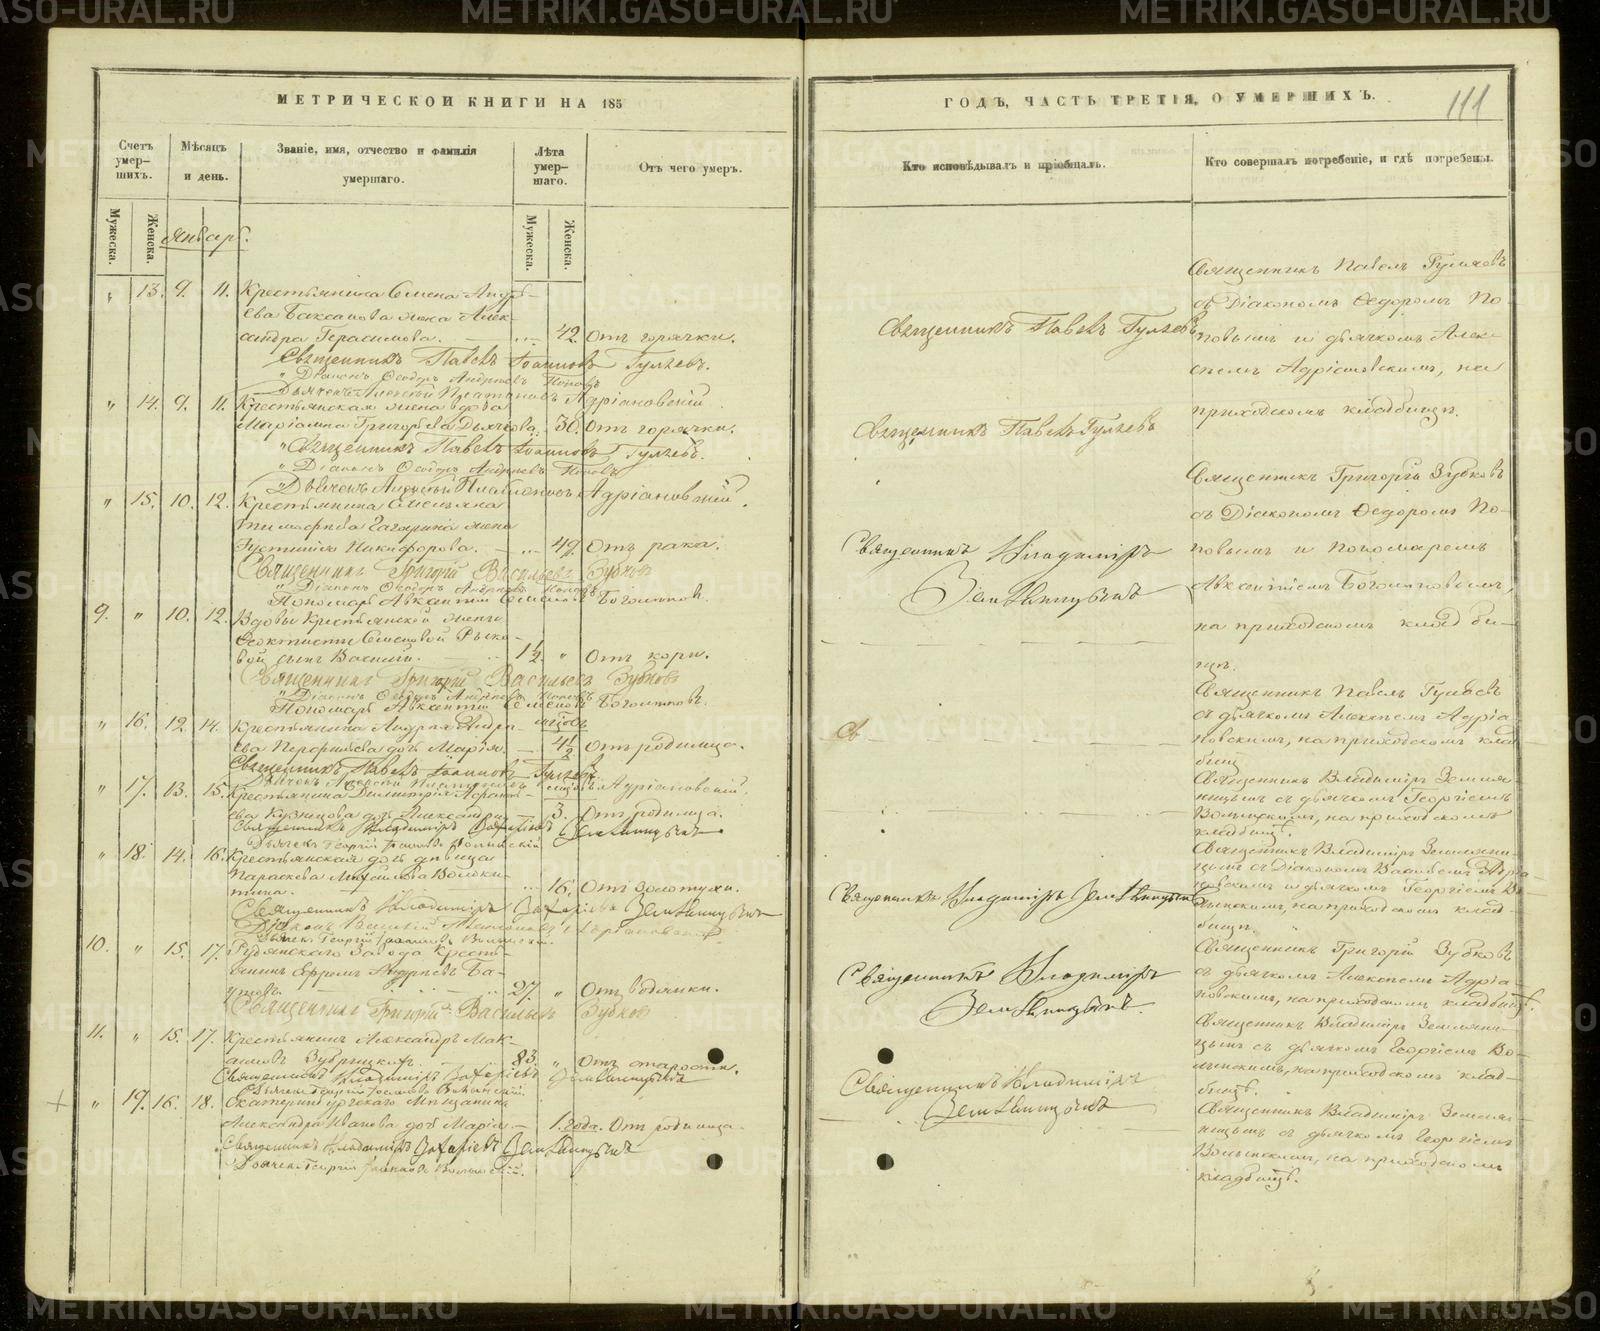 МЕТРИЧЕСКОЙ КНИГИ НА 185
Счетъ умер- шихъ.
Мѣсяцъ и день.
Званіе, имя, отчество и фамилія умершаго.
Лѣта умер- шаго.
Отъ чего умеръ.
Мужеска.
Женска.
Мужеска.
Женска.
Январь.
" 13. 9. 11. Крестьянина Семена Андре-
ева жена Алек-
сандра Герасимова. 42. Отъ горячки.
Священникъ Павелъ Іоанновъ Гуляевъ.
Діаконъ Ѳеодоръ Андреевъ Поповъ
Дьячекъ Алексѣй Платоновъ Адріановскій
" 14. 9. 11. Крестьянская жена вдова
Маріамна Григорьева Дьячкова. 30. Отъ горячки.
Священникъ Павелъ Іоанновъ Гуляевъ.
Діаконъ Ѳеодоръ Андреевъ Поповъ
Дьячекъ Алексѣй Платоновъ Адріановскій.
" 15. 10. 12. Крестьянина
Тимофеева жена
Устинія Никифорова. 49. Отъ рака.
Священникъ Григорій Васильевъ Зубковъ
Діаконъ Ѳеодоръ Андреевъ Поповъ
Пономарь Авксентій Семеновъ
9. " 10. 12. Вдовы Крестьянской жены
Ѳеоктисты Семеновой
сынъ Василій. 1½. " Отъ кори.
Священникъ Григорій Васильевъ Зубковъ
Діаконъ Ѳеодоръ Андреевъ Поповъ
Пономарь Авксентій Семеновъ
" 16. 12. 14. Крестьянина Андрея Андре-
ева дочь Марія. 4½ Отъ родимца.
Священникъ Павелъ Іоанновъ Гуляевъ
Дьячекъ Алексѣй Платоновъ Адріановскій.
" 17. 13. 15. Крестьянина Димитрія
Кузнецова дочь Александра 3. Отъ родимца.
Священникъ Владиміръ Захаріевъ Земляницынъ.
Дьячекъ Георгій Іоанновъ Волынскій
" 18. 14. 16. Крестьянская дочь дѣвица
Параскева Михайлова Волоки-
тина. 16. Отъ золотухи.
Священникъ Владиміръ Захаріевъ Земляницынъ
Дьячекъ Георгій Іоанновъ Волынскій
10. " 15. 17. Завода Кресть-
янинъ Ефремъ Андреевъ
27. " Отъ водянки.
Священникъ Григорій Васильевъ Зубковъ
11. " 15. 17. Крестьянинъ Александръ Мак-
симовъ 83. " Отъ старости.
Священникъ Владиміръ Захаріевъ Земляницынъ
Дьячекъ Георгій Іоанновъ Волынскій.
" 19. 16. 18. Екатеринбургскаго Мѣщанина
Александра Иванова дочь Марія 1. года. Отъ родимца.
Священникъ Владиміръ Захаріевъ Земляницынъ
Дьячекъ Георгій Іоанновъ Волынскій.
ГОДЪ, ЧАСТЬ ТРЕТІЯ, О УМЕРШИХЪ.
111
Кто исповѣдывалъ и пріобщалъ.
Кто совершалъ погребеніе, и гдѣ погребены.
Священникъ Павелъ Гуляевъ
Священникъ Павелъ Гуляевъ
Священникъ Владиміръ
Земляницынъ
Св
Священникъ Владиміръ Земляницынъ
Священникъ Владиміръ
Земляницынъ.
Священникъ Владиміръ
Земляницынъ
Священникъ Павелъ Гуляевъ
съ Діакономъ Ѳедоромъ По-
повымъ и дьячкомъ Алек-
сѣемъ Адріановскимъ, на
приходскомъ кладбищѣ.
Священникъ Григорій Зубковъ
съ Діакономъ Ѳедоромъ По-
повымъ и пономаремъ
Авксентіемъ
на приходскомъ кладби-
щѣ.
Священникъ Павелъ Гуляевъ
съ дьячкомъ Алексѣемъ Адріа-
новскимъ, на приходскомъ клад-
бищѣ
Священникъ Владиміръ Земля-
ницынъ съ дьячкомъ Георгіемъ
Волынскимъ, на приходскомъ
кладбищѣ.
Священникъ Владиміръ Земляни-
цынъ съ Діакономъ Адріа-
новскимъ и дьячкомъ Георгіемъ Во-
лынскимъ, на приходскомъ клад-
бищѣ.
Священникъ Григорій Зубковъ
съ дьячкомъ Алексѣемъ Адріа-
новскимъ, на приходскомъ кладбищѣ.
Священникъ Владиміръ Земляни-
цынъ съ дьячкомъ Георгіемъ Во-
лынскимъ, на приходскомъ клад-
бищѣ.
Священникъ Владиміръ Земля-
ницынъ съ дьячкомъ Георгіемъ
Волынскимъ, на приходскомъ
кладбищѣ.
METRIKI.GASO-URAL.RU